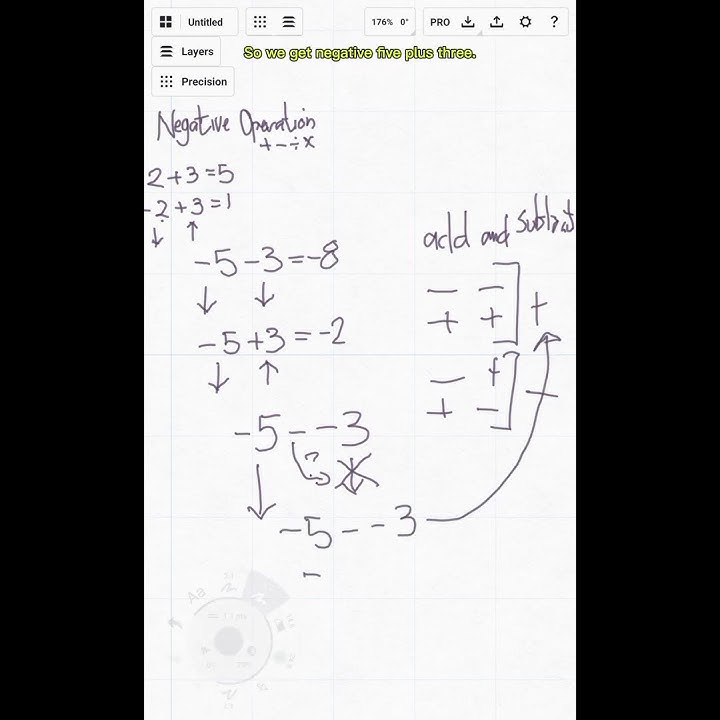 Untitled
176% 0°
PRO
?
Layers
So we get negative five plus three.
Precision
Negative Operation
+ - ÷ x
2+3=5
-2+3=1
add and subtract
-5-3=-8
- -
+ + ] +
-5+3=-2
- +
+ - ] -
-5--3
?
-5--3
-
Aa